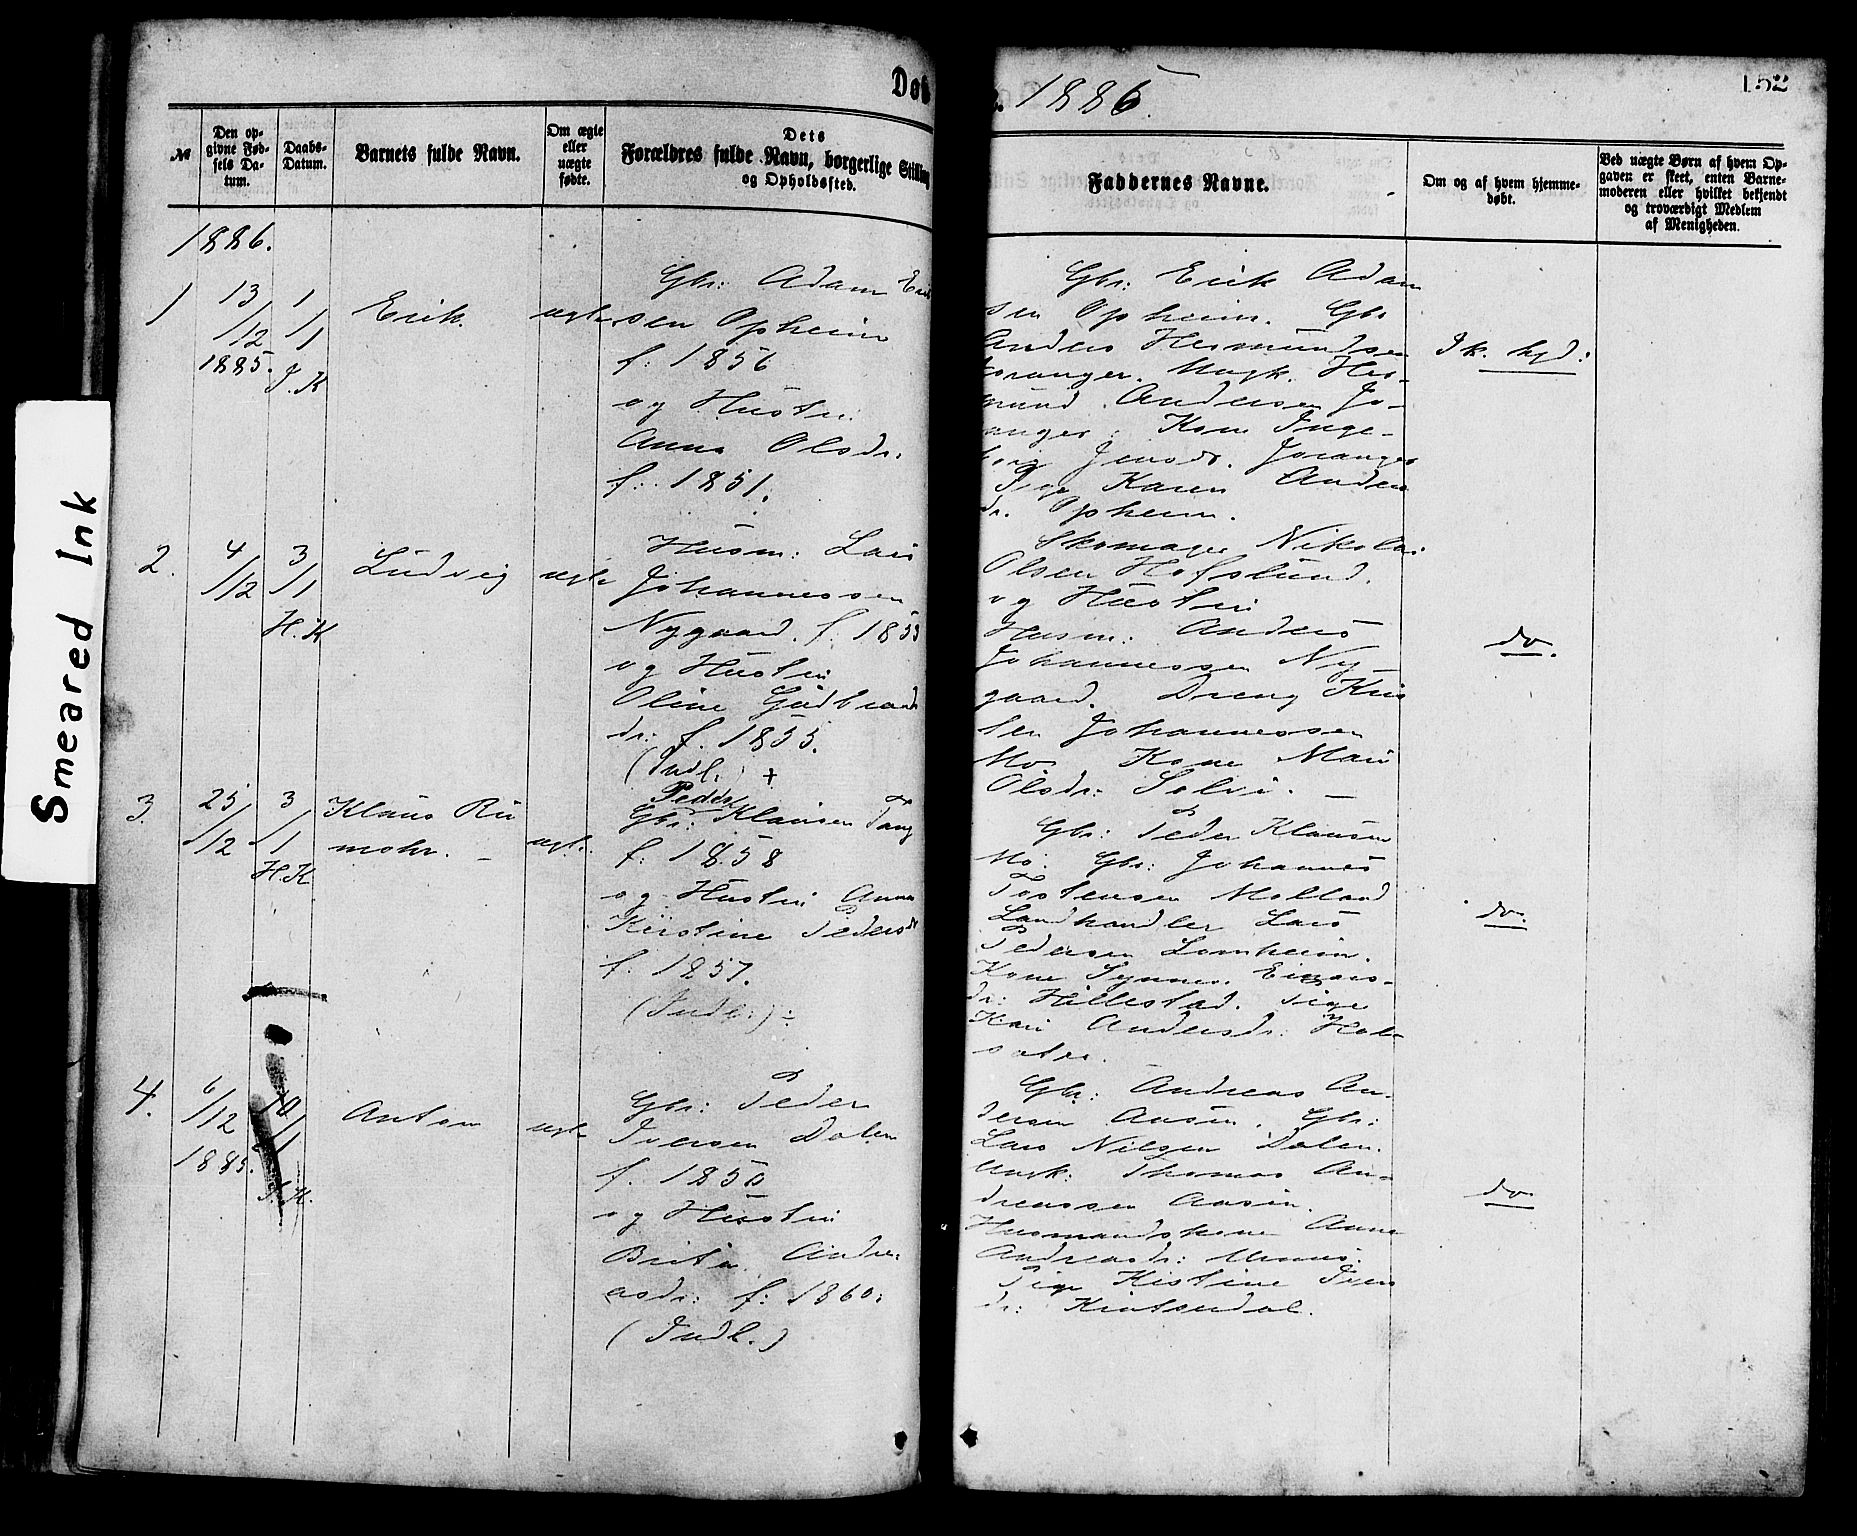 Smeared Ink
Dø
. 1886.
152
№
Den op-
givne Fød-
sels Da-
tum.
Daabs-
Datum.
Barnets fulde Navn.
Om ægte
eller
uægte
fødte.
Dets
Forældres fulde Navn, borgerlige Stilling
og Opholdssted.
Faddernes Navne.
Om og af hvem hjemme-
døbt.
Ved uægte Børn af hvem Op-
gaven er skeet, enten Barne-
moderen eller hvilket bekjendt
og troværdigt Medlem
af Menigheden.
1886.
1
13/12
1885.
1/1
J.K
Erik.
ægte
Gbr: Adam Erik
sen Opheim
f: 1856
og Hustru
Anna Olsdr.
f: 1851.
Gbr: Erik Adam
sen Opheim. Gbr
Anders Hermundsen
Joranger. Ungk. Her-
mund Andersen Jo-
anger. Kone Inge-
borg Jensdr. Joranger
Pige Karen Anders
dr. Opheim.
Ik. hjd:
2.
4/12
3/1
H.K
Ludvig
ægte
Husm: Lars
Johannessen
Nygaard. f. 1855
og Hustru
Oline Gudbrands
dr: f. 1855.
(Indl.) +
Skomager Nikolai
Olsen Hofslund.
og Hustru
Husm: Anders
Johannessen Ny-
gaard. Dreng Kris
ten Johannessen
Mo. Kone Mari
Olsdr: Solvi. —
do.
3.
25/12
3/1
H.K
Klaus Ru
mohr. —
ægte
Peder
Gbr: Klausen Tang
f: 1858
og Hustru Anna
Kirstine Pedersdr
f. 1857.
(Indl:) ÷
Gbr: Peder Klausen
Mo. Gbr: Johannes
Tostensen Molland
Landhandler Lars
Pedersen Lomheim.
Kone Synneve Einars-
dr: Hillestad. Pige
Kari Andersdr: Hole
sæter.
do.
4.
6/12
1885.
10/1
J.K.
Anton
ægte
Gbr: Peder
Iversen Dalen
f. 1850
og Hustru
Brita Andre-
asdr: f: 1860.
(Indl.)
Gbr: Andreas An-
dersen Aasen. Gbr:
Lars Nilsen Dalen.
Ungk: Thomas An-
dreassen Aasen.
Husmandskone Anna
Andreasdr: Urnes.
Pige Kistine Ivers
dr: Kintsedal.
do.